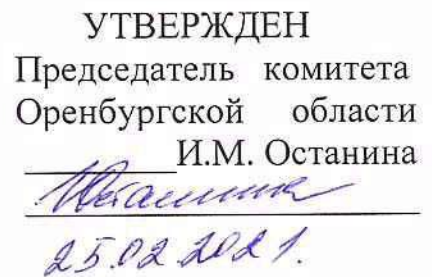 УТВЕРЖДЕН
Председатель комитета
Оренбургской области
И.М. Останина
25.02.2021.